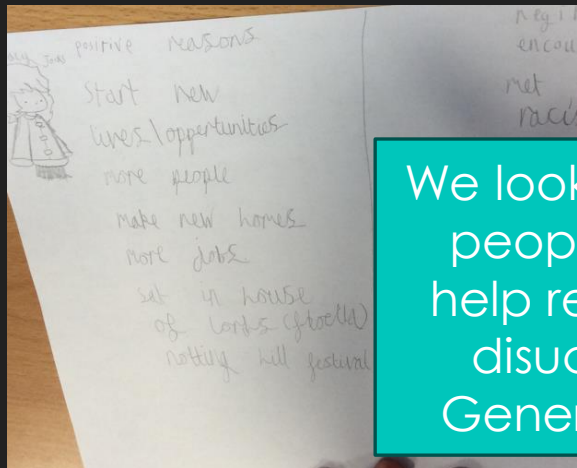 positive reasons
start new
lives/oppertunities
more people
make new homes
more jobs
sat in house
of lords
notting hill festival
encou
met
racis
We look
peop
help re
disuc
Gener